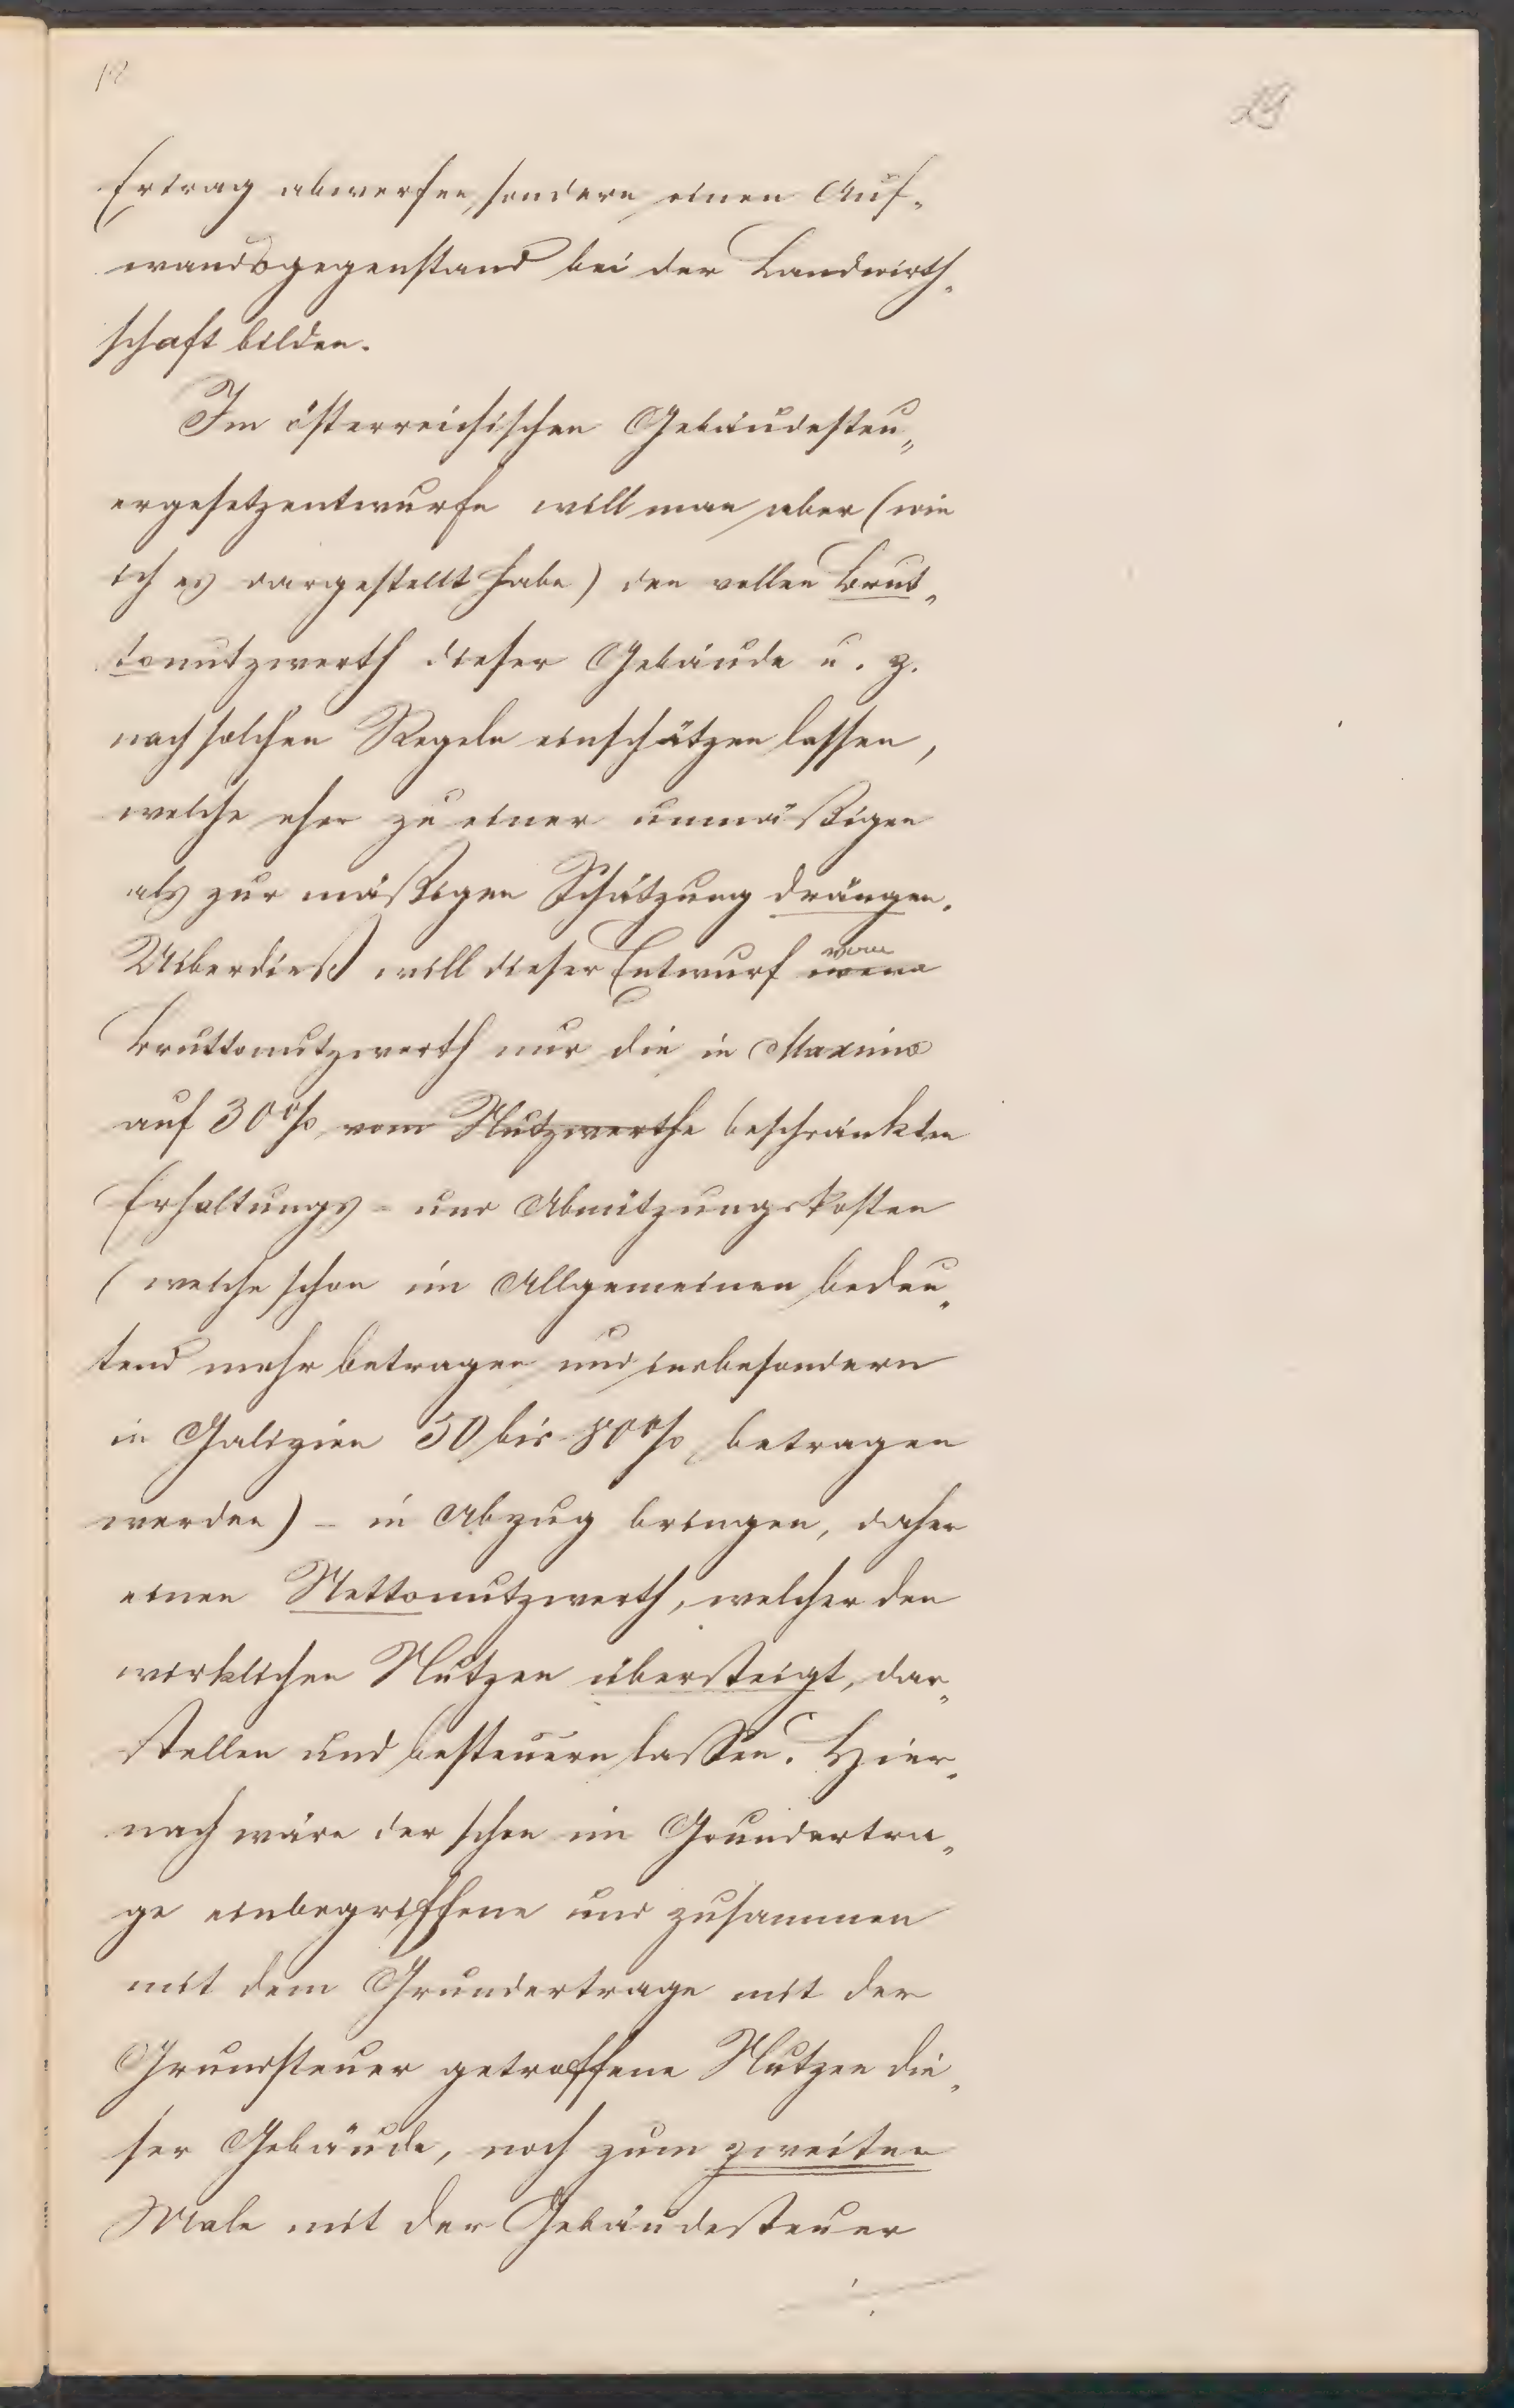 Ertrag abwerfen, sondern einen Auf-
wandsgegenstand bei der Landwirth-
schaft bilden.
Im österreichischen Gebäudesteu-
ergesetzentwurfe will man aber (wie
ich es dargestellt habe) den vollen Brut-
tonutzwerth dieser Gebäude u. z.
nach solchen Regeln einschätzen lassen,
welche eher zu einer unmäßigen
als zur mäßigen Schätzung drängen.
Uiberdieß will dieser Entwurf vom
Bruttonutzwerth nur die in Maximo
auf 30% vom Nutzwerthe beschränkten
Erhaltungs- und Abnützungskosten
(welche schon im Allgemeinen bedeu-
tend mehr betragen und insbesondern
in Galizien 50 bis 80% betragen
werden) - in Abzug bringen, daher
einen Nettonutzwerth, welcher den
wirklichen Nutzen übersteigt, dar-
stellen und besteuern lassen. Hier-
nach wäre der schon im Grundertra-
ge einbegriffene und zusammen
mit dem Grundertrage mit der
Grundsteuer getroffene Nutzen die-
ser Gebäude, noch zum zweiten
Male mit der Gebäudesteuer